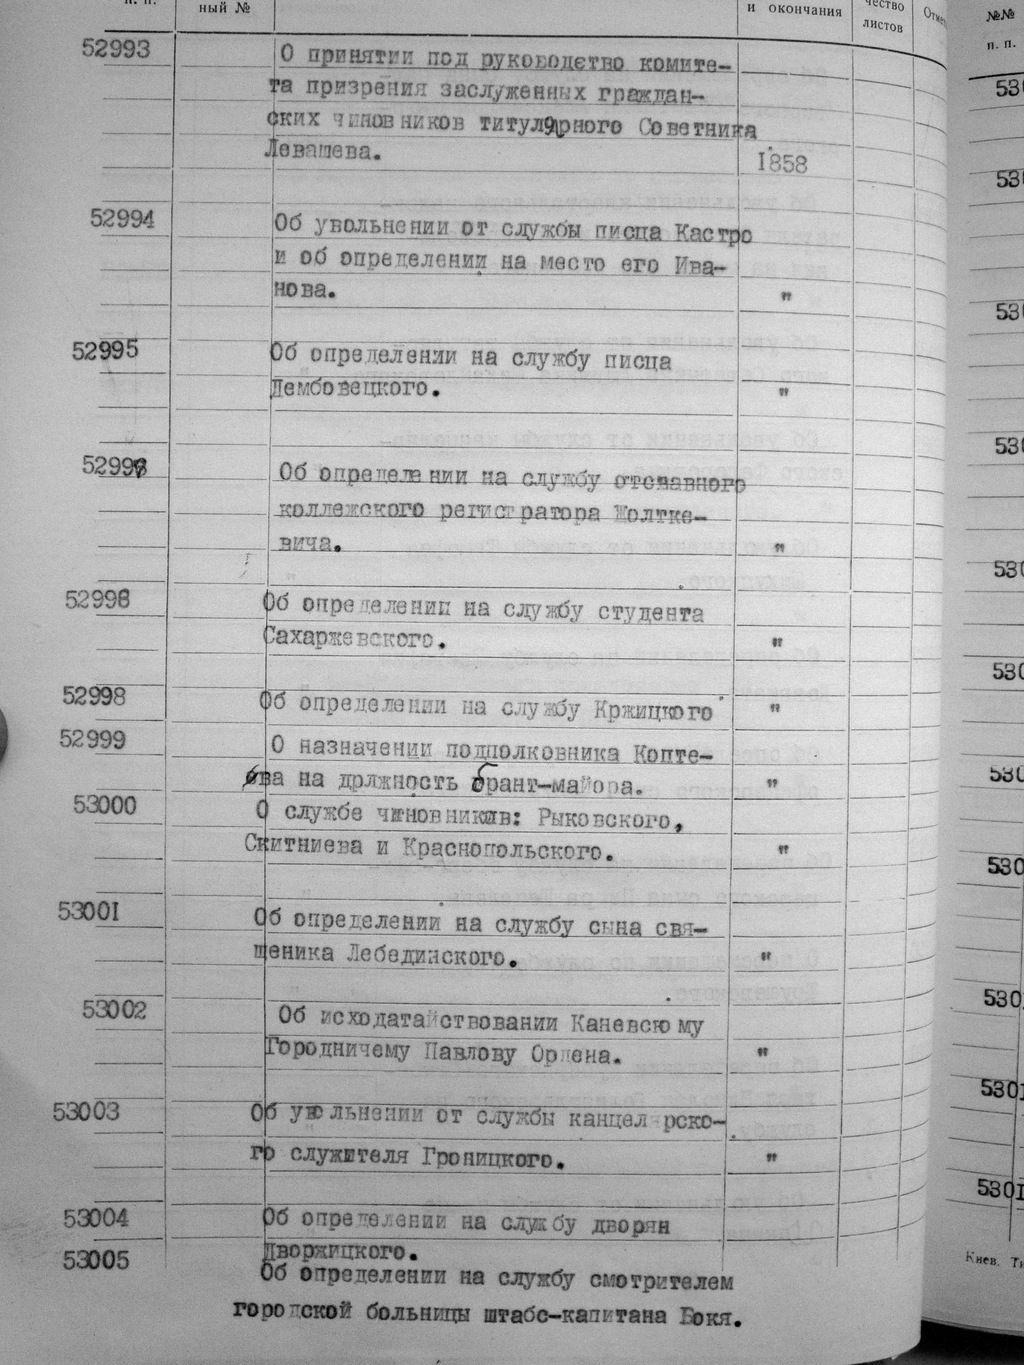 п. п.
ный №
и окончания
чество
листов
№№
п. п.
52993
О принятии под руководство комите-
та призрения заслуженных граждан-
ских чиновников титулярного Советника
Левашева.
1858
52994
Об увольнении от службы писца Кастро
и об определении на место его Ива-
нова.
"
52995
Об определении на службу писца
Дембовецкого.
"
Об определении на службу отставного
коллежского регистратора Жолтке-
вича.
"
52998
Об определении на службу студента
Сахаржевского.
"
52998
Об определении на службу Кржицкого
"
52999
О назначении подполковника Копте-
ва на должность брант-майора.
"
53000
О службе чиновников: Рыковского,
Скитниева и Краснопольского.
"
53001
Об определении на службу сына свя-
щеника Лебединского.
"
53002
Об исходатайствовании Каневскому
Городничему Павлову Ордена.
"
53003
Об увольнении от службы канцелрско-
го служителя Гроницкого.
"
53004
Об определении на службу дворян
Дворжицкого.
53005
Об определении на службу смотрителем
городской больницы штабс-капитана Бокя.
Киев.